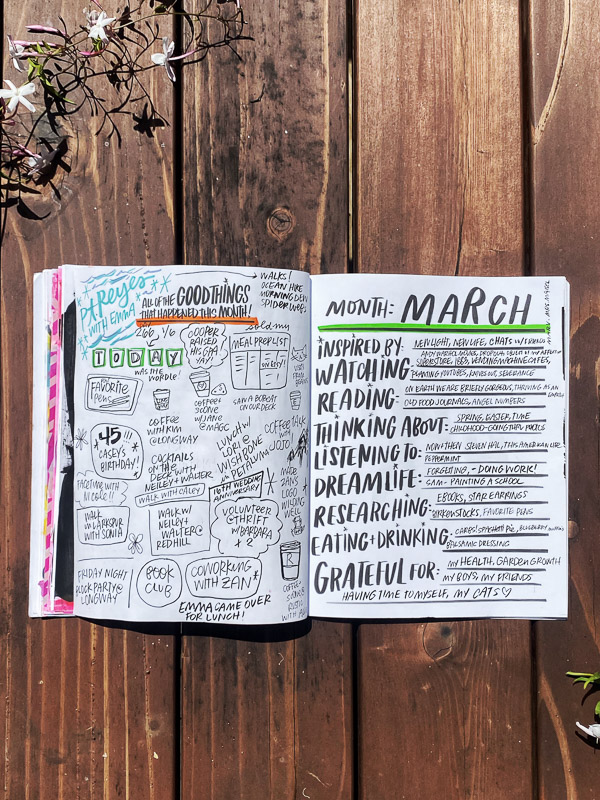 Pt Reyes
WITH EMMA
ALL OF THE GOOD THINGS
THAT HAPPENED THIS MONTH!
WALKS!
OCEAN HIKE
MORNING DEW
SPIDER WEBS
266, 1/6
TODAY
WAS THE
WORDLE!
COOPER
RAISED
HIS GPA
YAY!
sold my
MEAL PREP LIST
ON ETSY!
FAVORITE
Pens
COFFEE
WITH KIM
@LONGWAY
COFFEE +
SCONE
W/JANE
@MAGC
SAW A BOBCAT
ON OUR DECK
45!!!
CASEY'S
BIRTHDAY!
COCKTAILS
ON THE
DECK WITH
NELLY + WALTER
LUNCH W/
LORI @
WISHBONE
IN PETALUMA
COFFEE
WITH
JOJO
FACETIME WITH
NICOLE!!
WALK WITH CALEY
16TH WEDDING
ANNIVERSARY
MADE
ZAN'S
LOGO
WALK
IN LARKSPUR
WITH SONIA
WALK W/
NELLY +
WALTER @
RED HILL
VOLUNTEER
@THRIFT
W/BARBARA
+ 2
FRIDAY NIGHT
BLOCK PARTY @
LONGWAY
BOOK
CLUB
COWORKING
WITH ZAN
EMMA CAME OVER
FOR LUNCH!
MONTH: MARCH
INSPIRED BY: NEW LIGHT, NEW LIFE, CHATS W/FRIENDS
WATCHING:
READING: ON EARTH WE ARE BRIEFLY GORGEOUS, THRIVING AS AN
OLD FOOD JOURNALS, ANGEL NUMBERS
THINKING ABOUT: SPRING, EASTER, TIME
CHILDHOOD-GOING THRU PHOTOS
LISTENING TO: NOW + THEN, THIS AMERICAN LIFE
PEPPERMINT
DREAM LIFE: FORGETTING, - DOING WORK!
SAM - PAINTING A SCHOOL
RESEARCHING: EBOOKS, STAR EARRINGS
BIRKENSTOCKS, FAVORITE PENS
EATING + DRINKING: CARBS! SPAGHETTI PIE, BLUEBERRY
BALSAMIC DRESSING
GRATEFUL FOR: MY HEALTH, GARDEN GROWTH
MY BOYS, MY FRIENDS
HAVING TIME TO MYSELF, MY CATS ♡